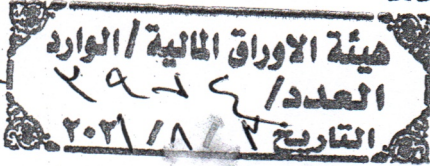 هيئة الاوراق المالية / الوارد
العدد/
التاريخ ٣ / ٨ / ٢٠٢١